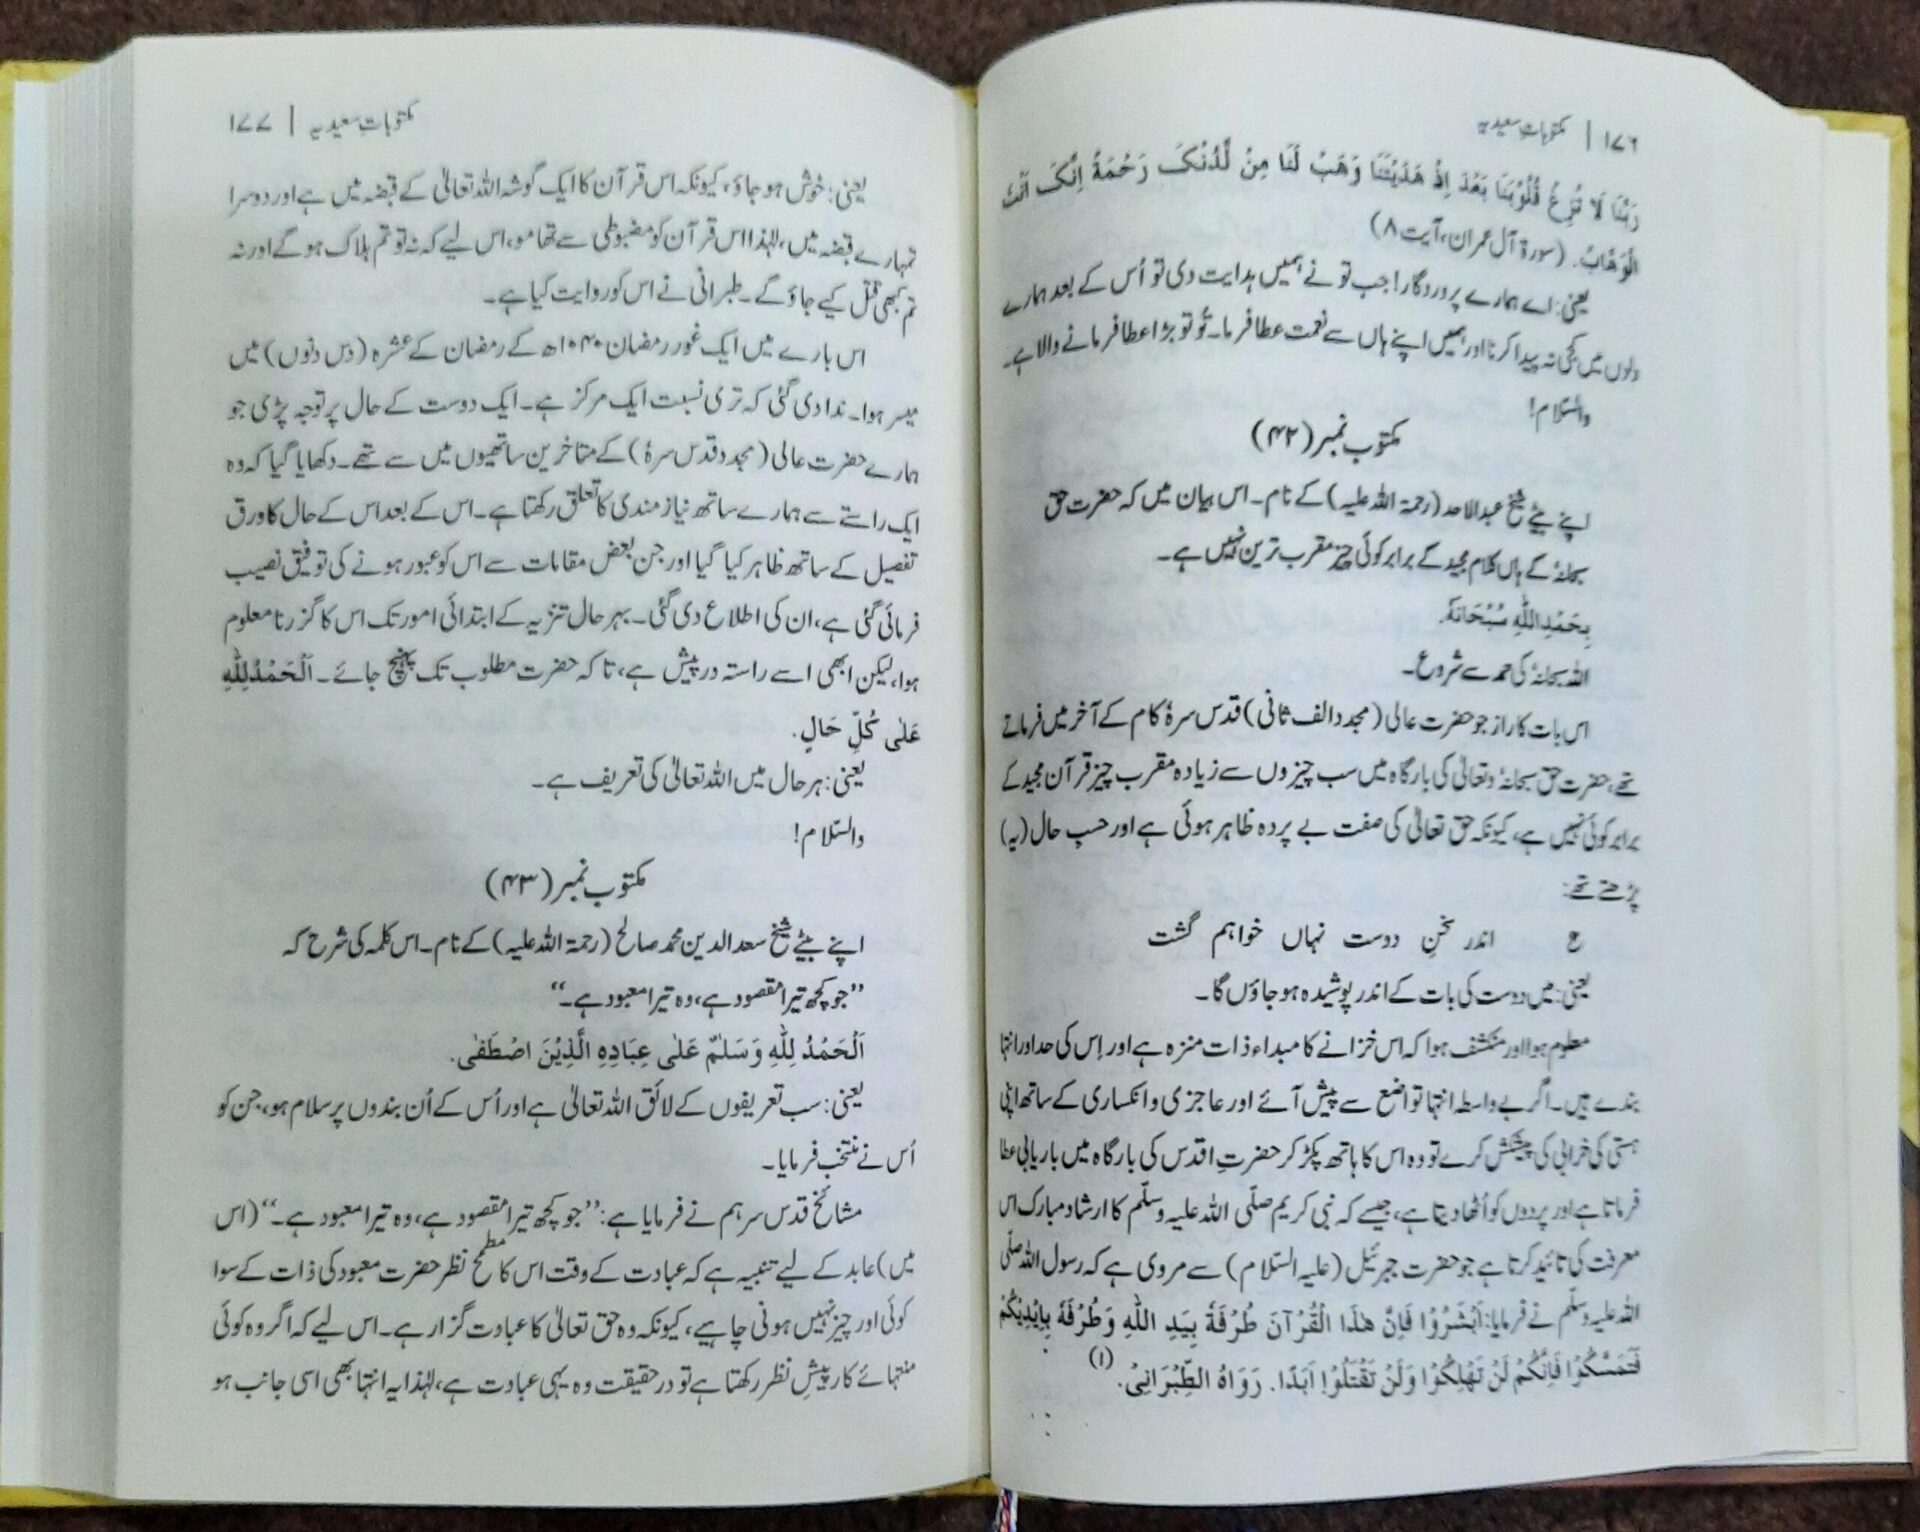 ۱۷۶ | مکتوباتِ سعیدیہ
رَبَّنَا لَا تُزِغْ قُلُوْبَنَا بَعْدَ اِذْ هَدَيْتَنَا وَهَبْ لَنَا مِنْ لَّدُنْكَ رَحْمَةً اِنَّكَ اَنْتَ
الْوَهَّابُ. (سورۃ آل عمران، آیت ۸)
یعنی: اے ہمارے پروردگار! جب تو نے ہمیں ہدایت دی تو اُس کے بعد ہمارے
دلوں میں کجی نہ پیدا کرنا اور ہمیں اپنے ہاں سے نعمت عطا فرما۔ تُو تو بڑا عطا فرمانے والا ہے۔
والسّلام!
مکتوب نمبر (۴۲)
اپنے بیٹے شیخ عبدالاحد (رحمۃ اللہ علیہ) کے نام۔ اس بیان میں کہ حضرت حق
سبحانہٗ کے ہاں کلام مجید کے برابر کوئی چیز مقرب ترین نہیں ہے۔
بِحَمْدِاللّٰهِ سُبْحَانَهٗ.
اللہ سبحانہٗ کی حمد سے شروع۔
اس بات کا راز جو حضرت عالی (مجدد الف ثانی) قدس سرہٗ کام کے آخر میں فرماتے
تھے، حضرت حق سبحانہٗ وتعالیٰ کی بارگاہ میں سب چیزوں سے زیادہ مقرب چیز قرآن مجید کے
برابر کوئی نہیں ہے، کیونکہ حق تعالیٰ کی صفت بے پردہ ظاہر ہوئی ہے اور حسبِ حال (یہ)
پڑھتے تھے:
ع اندر سخنِ دوست نہاں خواہم گشت
یعنی: میں دوست کی بات کے اندر پوشیدہ ہو جاؤں گا۔
معلوم ہوا اور منکشف ہوا کہ اس خزانے کا مبداء ذات منزہ ہے اور اِس کی حد اور انتہا
بندے ہیں۔ اگر بے واسطہ انتہا تواضع سے پیش آئے اور عاجزی وانکساری کے ساتھ اپنی
ہستی کی خرابی کی پیشکش کرے تو وہ اس کا ہاتھ پکڑ کر حضرتِ اقدس کی بارگاہ میں باریابی عطا
فرماتا ہے اور پردوں کو اُٹھا دیتا ہے، جیسے کہ نبی کریم صلّی اللہ علیہ وسلّم کا ارشاد مبارک اس
معرفت کی تائید کرتا ہے جو حضرت جبرئیل (علیہ السّلام) سے مروی ہے کہ رسول اللہ صلّی
اللہ علیہ وسلّم نے فرمایا: اَبْشَرُوْا فَاِنَّ هٰذَا الْقُرْآنَ طُرْفَةٌ بِيَدِ اللّٰهِ وَطُرْفَةٌ بِاَيْدِيْكُمْ
فَتَمَسَّكُوْا فَاِنَّكُمْ لَنْ تَهْلِكُوْا وَلَنْ تَقْتَلُوْا اَبَدًا. رَوَاهُ الطِّبْرَانِیُ. (۱)
مکتوباتِ سعیدیہ | ۱۷۷
یعنی: خوش ہو جاؤ، کیونکہ اس قرآن کا ایک گوشہ اللہ تعالیٰ کے قبضہ میں ہے اور دوسرا
تمہارے قبضہ میں، لہٰذا اس قرآن کو مضبوطی سے تھامو، اس لیے کہ نہ تو تم ہلاک ہو گے اور نہ
تم کبھی قتل کیے جاؤ گے۔ طبرانی نے اس کو روایت کیا ہے۔
اس بارے میں ایک غور رمضان ۱۰۴۰ھ کے رمضان کے عشرہ (دس دنوں) میں
میسر ہوا۔ ندا دی گئی کہ تری نسبت ایک مرکز ہے۔ ایک دوست کے حال پر توجہ پڑی جو
ہمارے حضرت عالی (مجدد قدس سرہٗ) کے متاخرین ساتھیوں میں سے تھے۔ دکھایا گیا کہ وہ
ایک راستے سے ہمارے ساتھ نیازمندی کا تعلق رکھتا ہے۔ اس کے بعد اس کے حال کا ورق
تفصیل کے ساتھ ظاہر کیا گیا اور جن بعض مقامات سے اس کو عبور ہونے کی توفیق نصیب
فرمائی گئی ہے، ان کی اطلاع دی گئی۔ بہر حال تنزیہ کے ابتدائی امور تک اس کا گزرنا معلوم
ہوا، لیکن ابھی اسے راستہ درپیش ہے، تا کہ حضرت مطلوب تک پہنچ جائے۔ اَلْحَمْدُلِلّٰهِ
عَلٰی كُلِّ حَالٍ.
یعنی: ہر حال میں اللہ تعالیٰ کی تعریف ہے۔
والسّلام!
مکتوب نمبر (۴۳)
اپنے بیٹے شیخ سعدالدین محمد صالح (رحمۃ اللہ علیہ) کے نام۔ اس کلمہ کی شرح کہ
”جو کچھ تیرا مقصود ہے، وہ تیرا معبود ہے۔“
اَلْحَمْدُ لِلّٰهِ وَسَلٰمٌ عَلٰی عِبَادِهِ الَّذِيْنَ اصْطَفٰی.
یعنی: سب تعریفوں کے لائق اللہ تعالیٰ ہے اور اُس کے اُن بندوں پر سلام ہو، جن کو
اُس نے منتخب فرمایا۔
مشائخ قدس سرہم نے فرمایا ہے: ”جو کچھ تیرا مقصود ہے، وہ تیرا معبود ہے۔“ (اس
میں) عابد کے لیے تنبیہ ہے کہ عبادت کے وقت اس کا مطمح نظر حضرت معبود کی ذات کے سوا
کوئی اور چیز نہیں ہونی چاہیے، کیونکہ وہ حق تعالیٰ کا عبادت گزار ہے۔ اس لیے کہ اگر وہ کوئی
منتہائے کار پیشِ نظر رکھتا ہے تو در حقیقت وہ یہی عبادت ہے، لہٰذا یہ انتہا بھی اسی جانب ہو